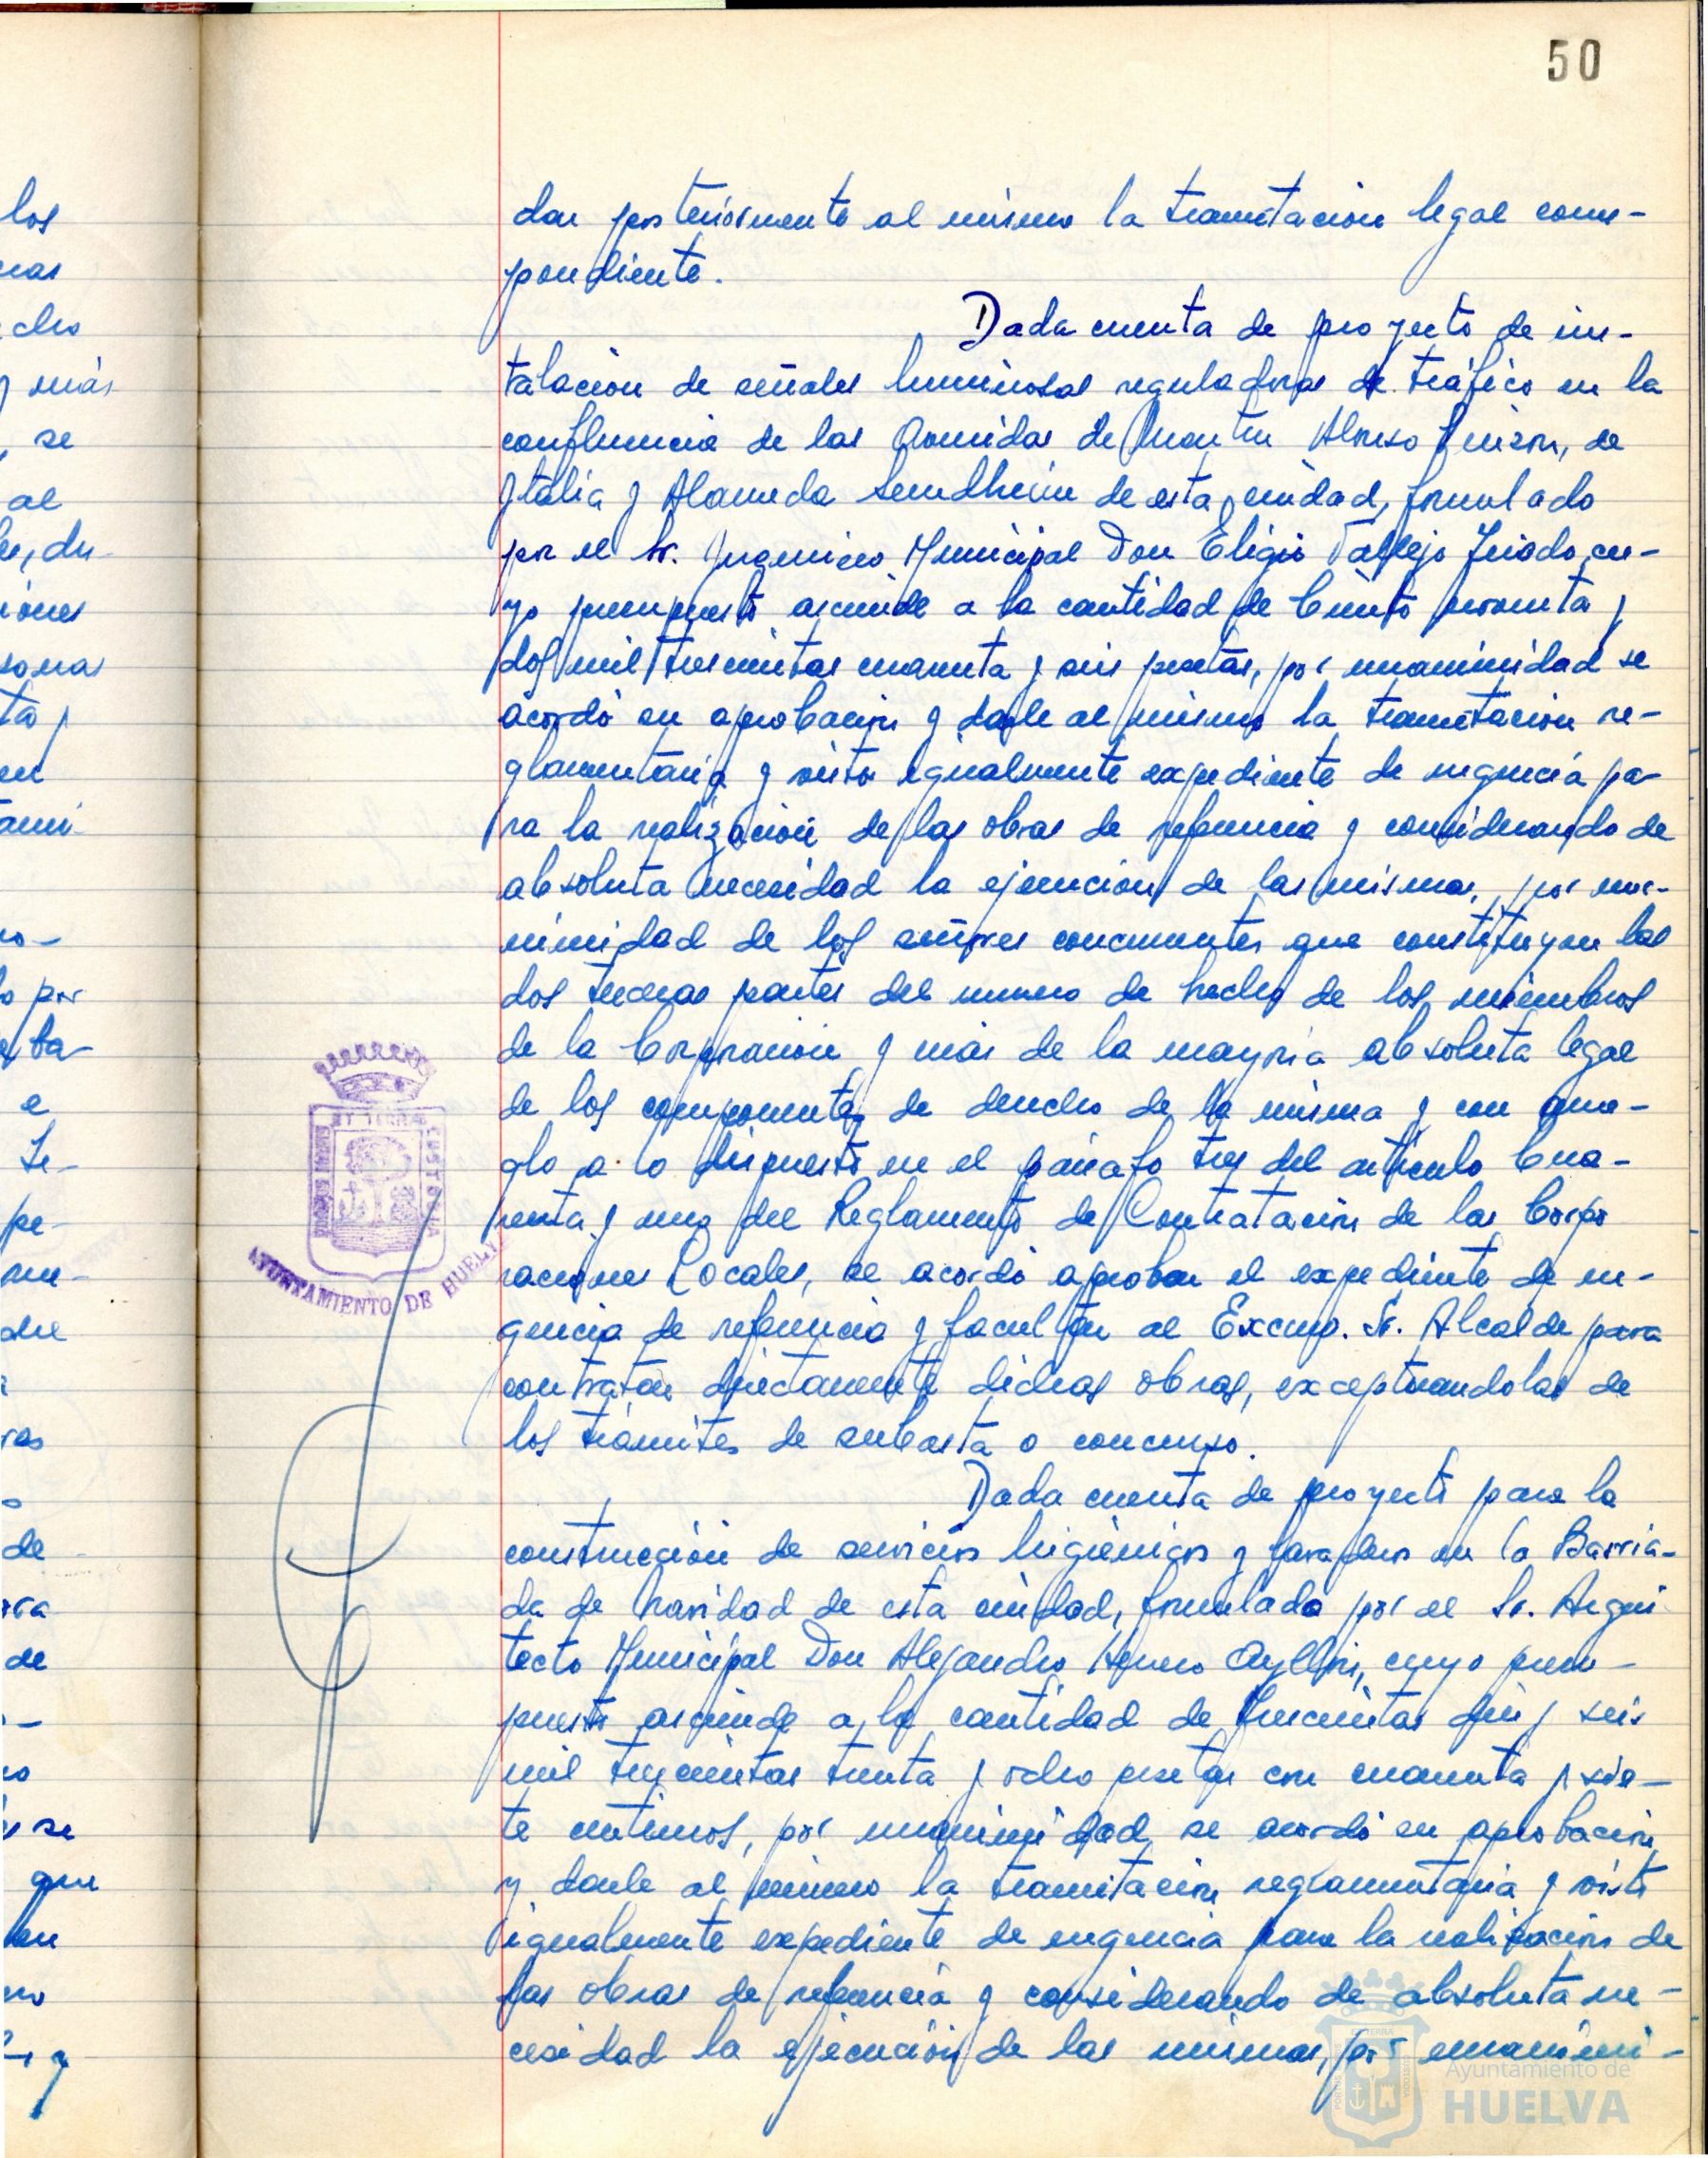 50
los
nas
cho
y más
, se
al
dar posteriormente al mismo la tramitacion legal corres-
pondiente.
Dada cuenta de proyecto de ins-
talacion de señales luminosas reguladoras de tráfico en la
confluencia de las Avenidas de Martin Alonso Pinzon, de
Italia y Alameda Sundheim de esta ciudad, formulado
por el Sr. Ingeniero Municipal Don Eligio Vallejo Triado, cu-
yo presupuesto asciende a la cantidad de Ciento noventa y
dos mil trescientas cuarenta y seis pesetas, por unanimidad se
acordó su aprobación y darle al mismo la tramitacion re-
glamentaria y visto igualmente expediente de urgencia pa-
ra la realización de las obras de referencia y considerando de
absoluta necesidad la ejecución de las mismas, por una-
nimidad de los señores concurrentes que constituyen las
dos terceras partes del numero de hecho de los miembros
de la Corporacion y más de la mayoria absoluta legal
de los componentes de derecho de la misma y con arre-
glo a lo dispuesto en el párrafo tres del articulo Cua-
renta y uno del Reglamento de Contratación de las Corpo
raciones Locales, se acordó aprobar el expediente de ur-
gencia de referencia y facultar al Excmo. Sr. Alcalde para
contratar directamente dichas obras, exceptuandolas de
los trámites de subasta o concurso.
Dada cuenta de proyecto para la
construcción de servicios higiénicos y lavaderos en la Barria-
da de Navidad de esta ciudad, formulado por el Sr. Arqui
tecto Municipal Don Alejandro Herrero Ayllón, cuyo presu-
puesto asciende a la cantidad de trescientas diez y seis
mil trescientas treinta y ocho pesetas con cuarenta y sie-
te centimos, por unanimidad se acordó su aprobación
y darle al mismo la tramitación reglamentaria y visto
igualmente expediente de urgencia para la realización de
las obras de referencia y considerando de absoluta ne-
cesidad la ejecución de las mismas, por unanimi-
AYUNTAMIENTO DE HUELVA
Ayuntamiento de
HUELVA